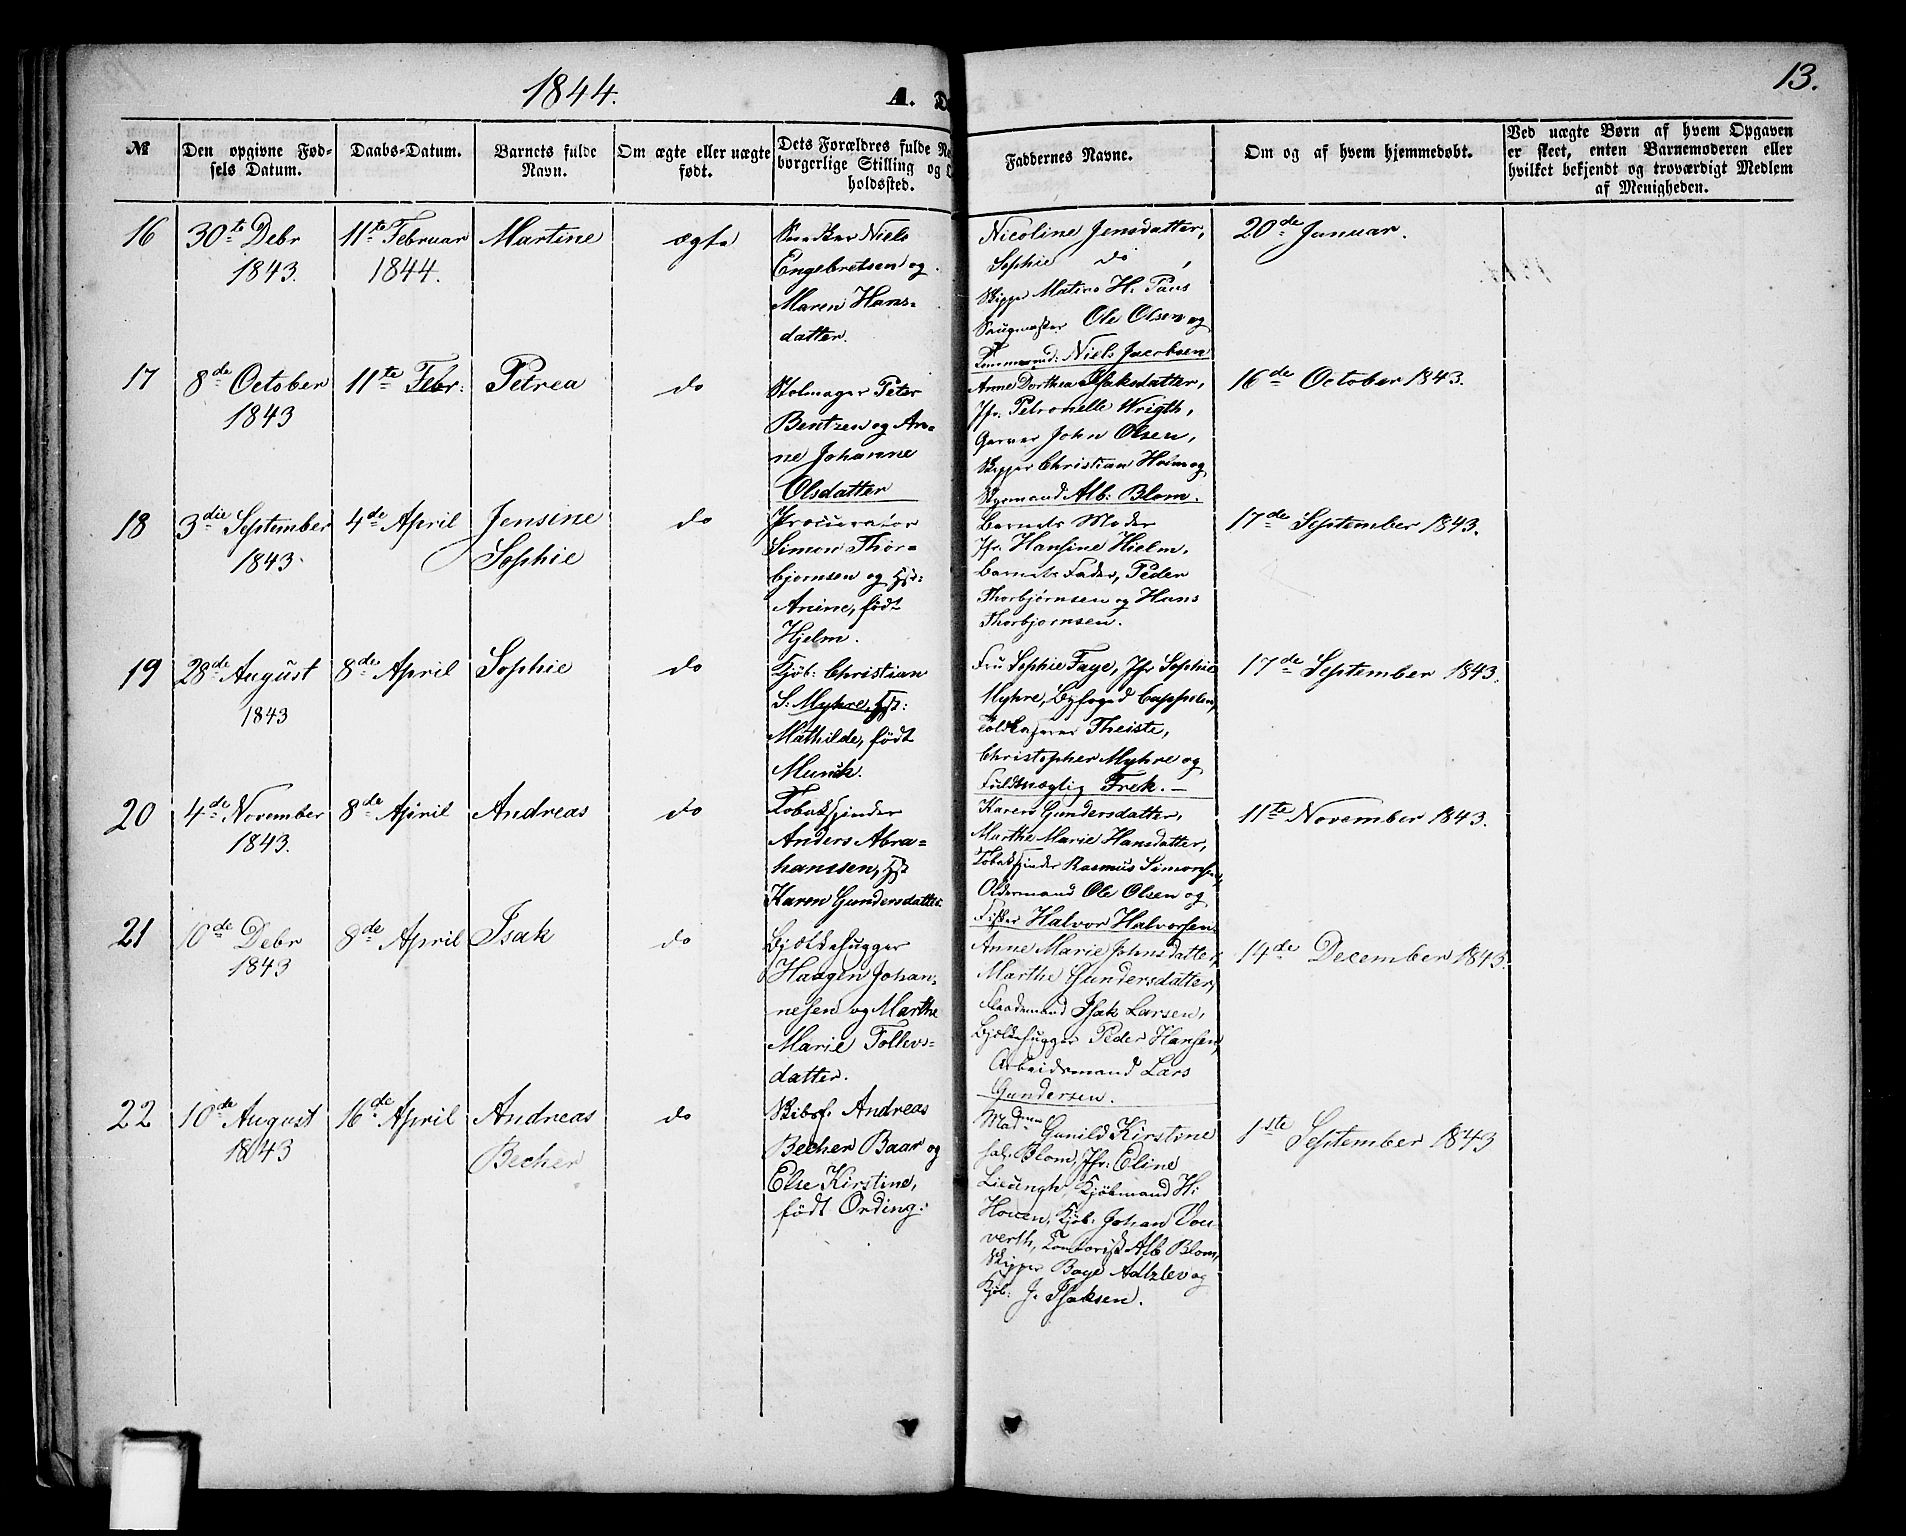 1844.
A. D
13.
№
Den opgivne Fød-
sels Datum.
Daabs-Datum.
Barnets fulde
Navn.
Om ægte eller uægte
født.
Dets Forældres fulde Na
borgerlige Stilling og O
holdssted.
Faddernes Navne.
Om og af hvem hjemmedøbt.
Ved uægte Børn af hvem Opgaven
er skeet, enten Barnemoderen eller
hvilket bekjendt og troværdigt Medlem
af Menigheden.
16
30te Debr
1843.
11te Februar
1844.
Martine
ægte
Snedker Niels
Engebretsen og
Maren Hans-
datter.
Nicoline Jensdatter,
Sophie do,
Skipper Matias H. Paus
Saugmester Ole Olsen og
Niels Jacobsen
20de Januar.
17
8de October
1843
11te Febr:
Petrea
do
Stolmager Peter
Bentzen og An-
ne Johanne
Olsdatter
Anne Dorthea Isaksdatter,
Jfr. Petronelle Wrigth,
Garver John Olsen,
Skipper Christian Holm og
Styrmand Alb: Blom.
16de October 1843.
18
3die September
1843.
4de April
Jensine
Sophie
do
Procurator
Simon Thor-
bjørnsen og Hst:
Anine, født
Hjelm.
Barnets Moder
Jfr. Hansine Hielm,
Barnets Fader, Peder
Thorbjørnsen og Hans
Thorbjørnsen.
17de September 1843.
19
28de August
1843
8de April
Sophie
do
Kjøb: Christian
S: Myhre, Hst:
Mathilde, født
Munck.
Fru Sophie Faye, Jfr Sophie
Myhre, Byfoged Cappelen,
Toldkasserer Theiste,
Christopher Myhre og
Fuldmægtig Frek. —
17de September 1843.
20
4de November
1843.
8de April
Andreas
do
Tobakspinder
Anders Abra-
hamsen, Hst
Karen Gundersdatter
Karen Gundersdatter,
Marthe Marie Hansdatter,
Tobakspinder Rasmus Simonsen,
Oldermand Ole Olsen og
Fisker Halvor Halvorsen.
11te November 1843.
21
10de Debr
1843
8de April
Isak
do
Bjælkehugger
Haagen Johan-
nesen og Marthe
Marie Tollevs-
datter.
Anne Marie Johnsdatter,
Marthe Gundersdatter,
Isak Larsen,
Bjælkehugger Peder Hansen,
Arbeidsmand Lars
Gundersen.
14de December 1843.
22
10de August
1843
16de April
Andreas
Becher
do
Skibsf. Andreas
Becher Baar og
Else Kirstine,
født Ording.
Madme Gunild Kirstine
sal. Blom, Jfr: Eline
Lieungh, Kjøbmand H:
Houen, Kjøb. Johan Vou-
verth, Contorist Alb Blom,
Skipper Boye Adtzlev og
Kjøb: J. Isaksen.
1ste September 1843